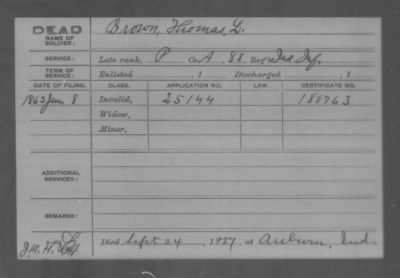 DEAD
NAME OF SOLDIER: Brown, Thomas L.
SERVICE: Late rank, P Co. A, 88 Reg't Ind. Inf.
TERM OF SERVICE: Enlisted , 1 Discharged , 1
DATE OF FILING. CLASS. APPLICATION NO. LAW. CERTIFICATE NO.
1863 Jan. 8 Invalid, 25144 188763
Widow,
Minor,
ADDITIONAL SERVICES:
REMARKS:
Died Sept. 24, 1927, at Auburn, Ind.